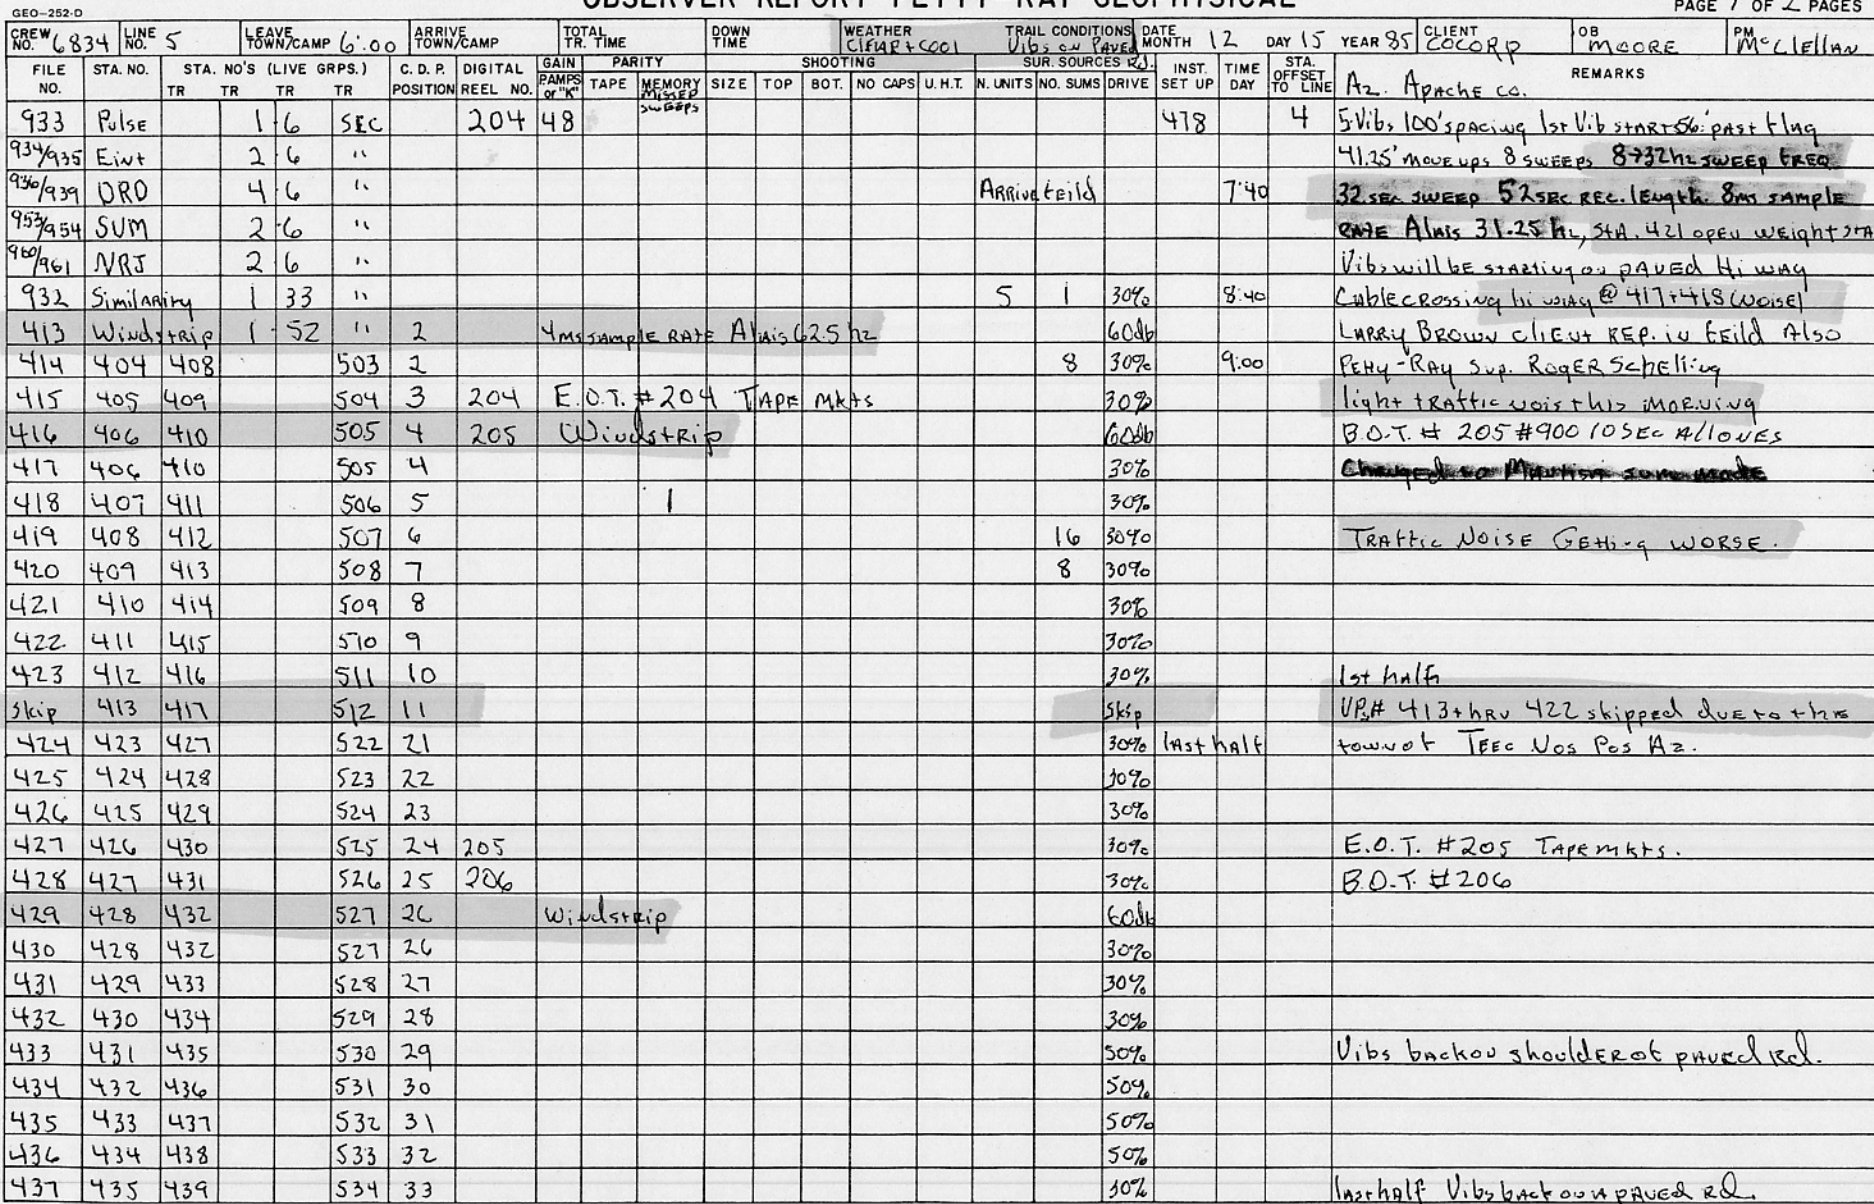 OBSERVER REPORT PETTY-RAY GEOPHYSICAL
GEO-252-D
PAGE 1 OF 2 PAGES
CREW NO. 6834 LINE NO. 5 LEAVE TOWN/CAMP 6:00 ARRIVE TOWN/CAMP TOTAL TR. TIME DOWN TIME WEATHER ClEAR + COOl TRAIL CONDITIONS Vibs on PAVED Rd. DATE MONTH 12 DAY 15 YEAR 85 CLIENT COCORP OB MOORE PM McClEllAN
FILE NO. STA. NO. STA. NO'S (LIVE GRPS.) TR TR TR TR C. D. P. POSITION DIGITAL REEL NO. GAIN PAMPS or "K" PARITY TAPE MEMORY MISSED SWEEPS SHOOTING SIZE TOP BOT. NO CAPS U. H.T. SUR. SOURCES N. UNITS NO. SUMS DRIVE INST. SET UP TIME DAY STA. OFFSET TO LINE REMARKS
Az. Apache co.
933 Pulse 1 6 SEC 204 48 478 4 5-Vibs 100' spacing 1st Vib start 56' past flag
934/935 Eint 2 6 " 41.25' move ups 8 sweeps 8→32hz sweep freq
936/939 ORD 4 6 " Arrive feild 7:40 32 sec sweep 52 sec rec. length. 8ms sample
953/954 SUM 2 6 " RATE Alais 31.25 hz, STA. 421 open weight STA
960/961 NRJ 2 6 " Vibs will be starting on paved Hi way
932 Similarity 1 33 " 5 1 30% 8:40 Cable crossing hi way @ 417+418 (NOISE)
413 Windstrip 1 - 52 " 2 4ms sample RATE Alais 62.5 hz 60db LARRY BROWN CliENT REP. in feild Also
414 404 408 503 2 8 30% 9:00 Petty-Ray Sup. Roger Schelling
415 405 409 504 3 204 E.O.T. #204 TAPE mkts 30% light traffic nois this morning
416 406 410 505 4 205 Windstrip 60db B.O.T. # 205 #900 10 SEC AllONES
417 406 410 505 4 30%
418 407 411 506 5 1 30%
419 408 412 507 6 16 30% TRAffic NOISE GEtting WORSE.
420 409 413 508 7 8 30%
421 410 414 509 8 30%
422 411 415 510 9 30%
423 412 416 511 10 30% 1st half
Skip 413 417 512 11 Skip VP.# 413 thru 422 skipped due to the
424 423 427 522 21 30% last half town of TEEC Nos Pos Az.
425 424 428 523 22 30%
426 425 429 524 23 30%
427 426 430 525 24 205 30% E.O.T. #205 Tape mkts.
428 427 431 526 25 206 30% B.O.T. #206
429 428 432 527 26 Windstrip 60db
430 428 432 527 26 30%
431 429 433 528 27 30%
432 430 434 529 28 30%
433 431 435 530 29 50% Vibs back on shoulder of paved Rd.
434 432 436 531 30 50%
435 433 437 532 31 50%
436 434 438 533 32 50%
437 435 439 534 33 30% last half Vibs back on paved RD.